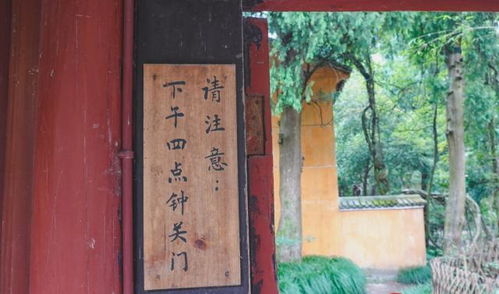 请注意：
下午四点钟关门